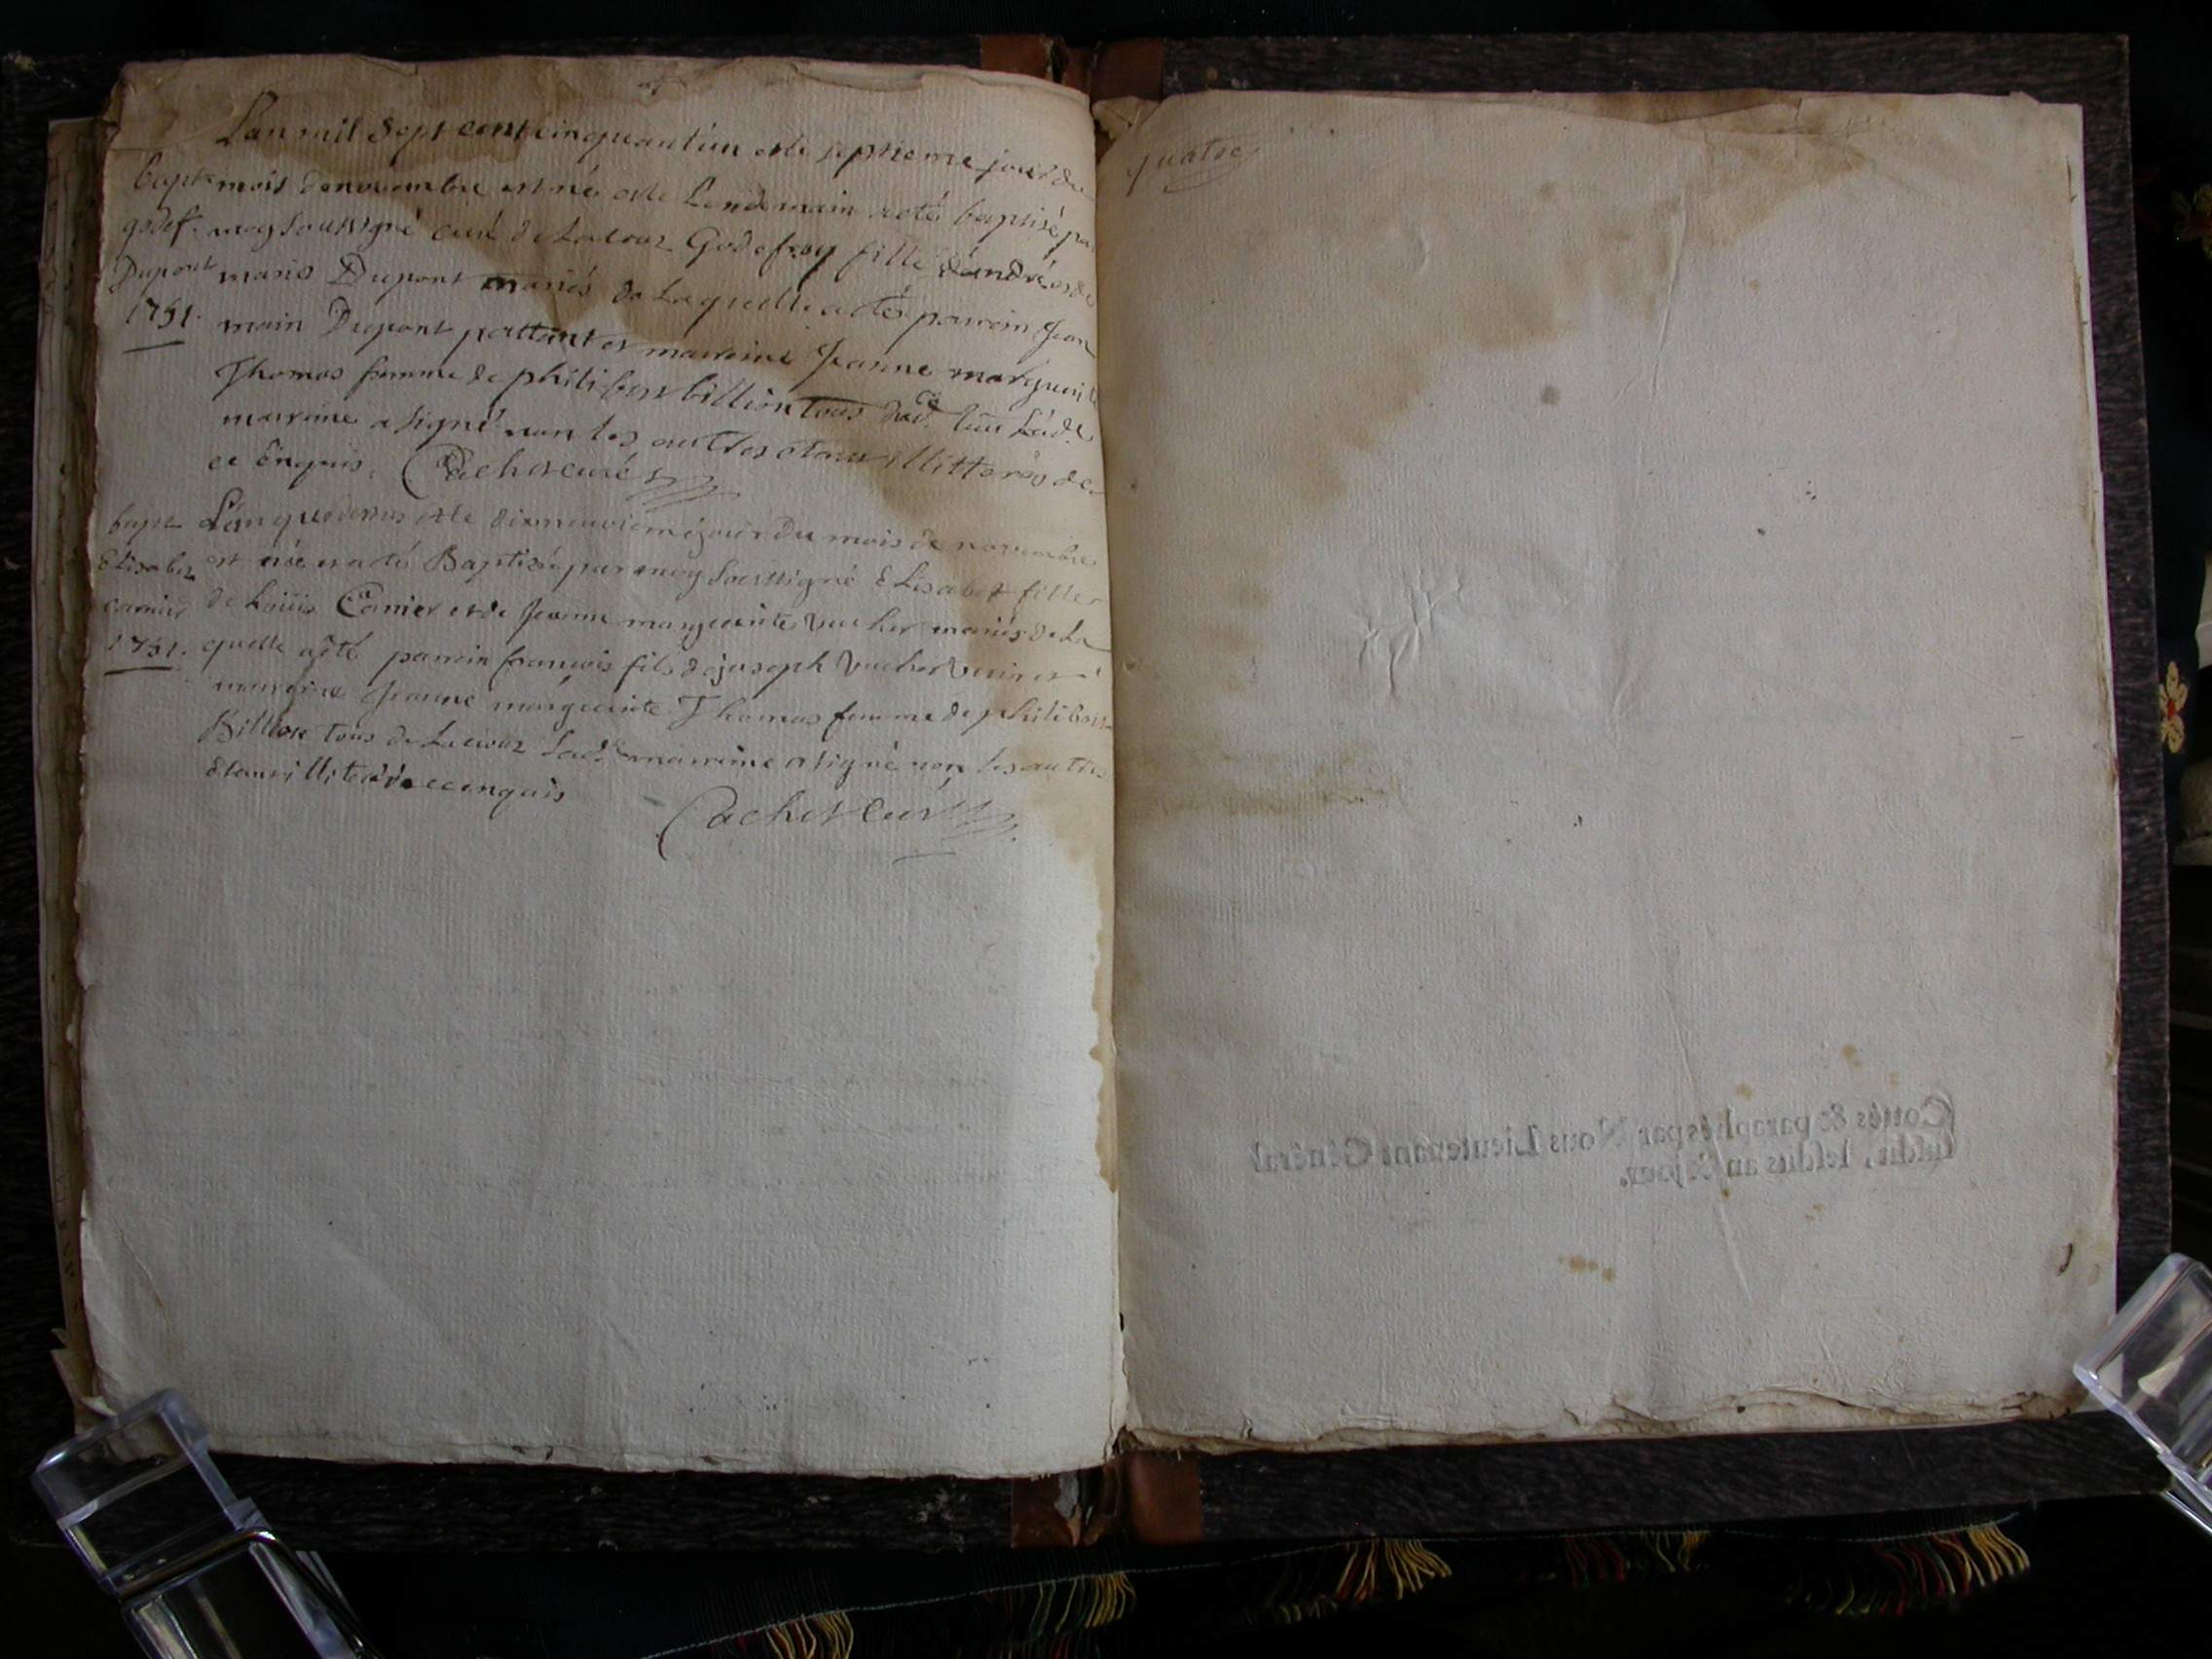 L'an mil sept cent cinquant'un et le septieme jour du
bapt. mois de novembre est né et le Lendemain a eté baptisé par
godef. moy soussigné curé de Lacrouz Godefroy fille d'andré et de
Dupont marie Dupont mariés de Laquelle a eté parrein Jean
1751. main Dupont et marreine Jeanne marguerite
Thomas femme de philibert billion tous dud. lieu Lad.e
marreine a signé non les autres étans illitterés de
ce Enquis. Cachet curé
bapt. L'an que dessus et le dixneuvieme jour du mois de novembre
Elisabet est née et a eté Baptisé par moy soussigné Elisabet fille
carnier de Loüis Carnier et de Jeanne marguerite vucher mariés de La
1751. quelle a eté parrein francois fils de joseph vucher et
marreine Jeanne marguerite Thomas femme de philibert
Billion tous de Lacrouz Lad.e marreine a signé non les autres
étans illiterés de ce enquis
Cachet curé
quatre
Cottés & paraphés par Nous Lieutenant Général
susdit, lesdits an & jour.